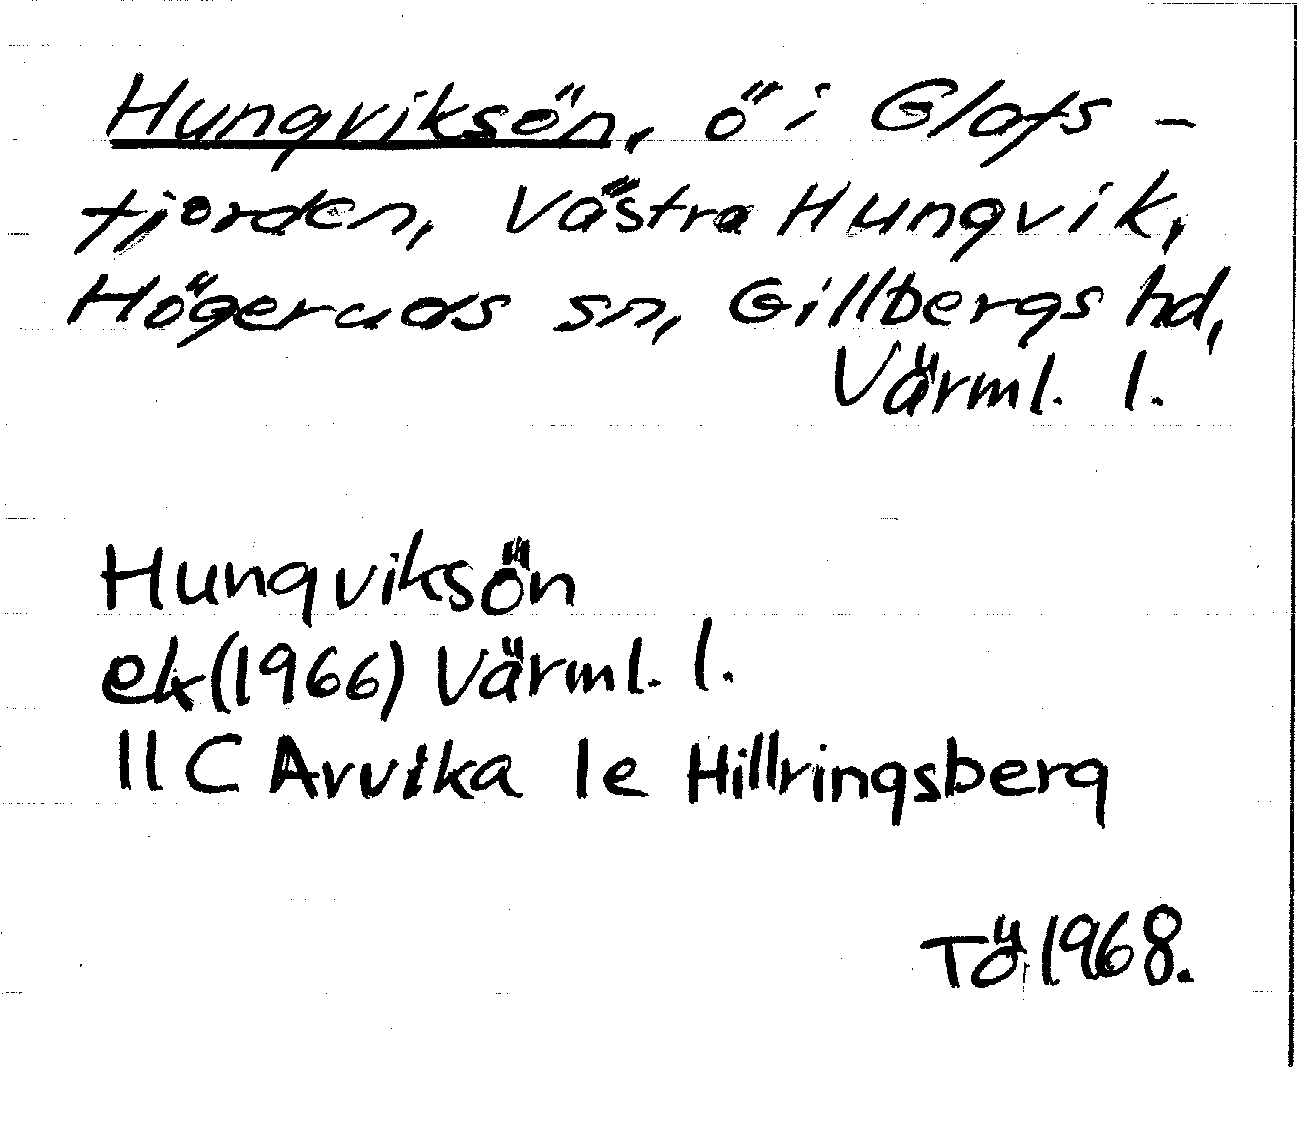 Hungviksön, ö i Glafs-
fjorden, Västra Hungvik,
Högeruds sn, Gillbergs hd,
Värml. l.
Hungviksön
ek (1966) Värml. l.
11 C Arvika 1e Hillringsberg
TÖ 1968.